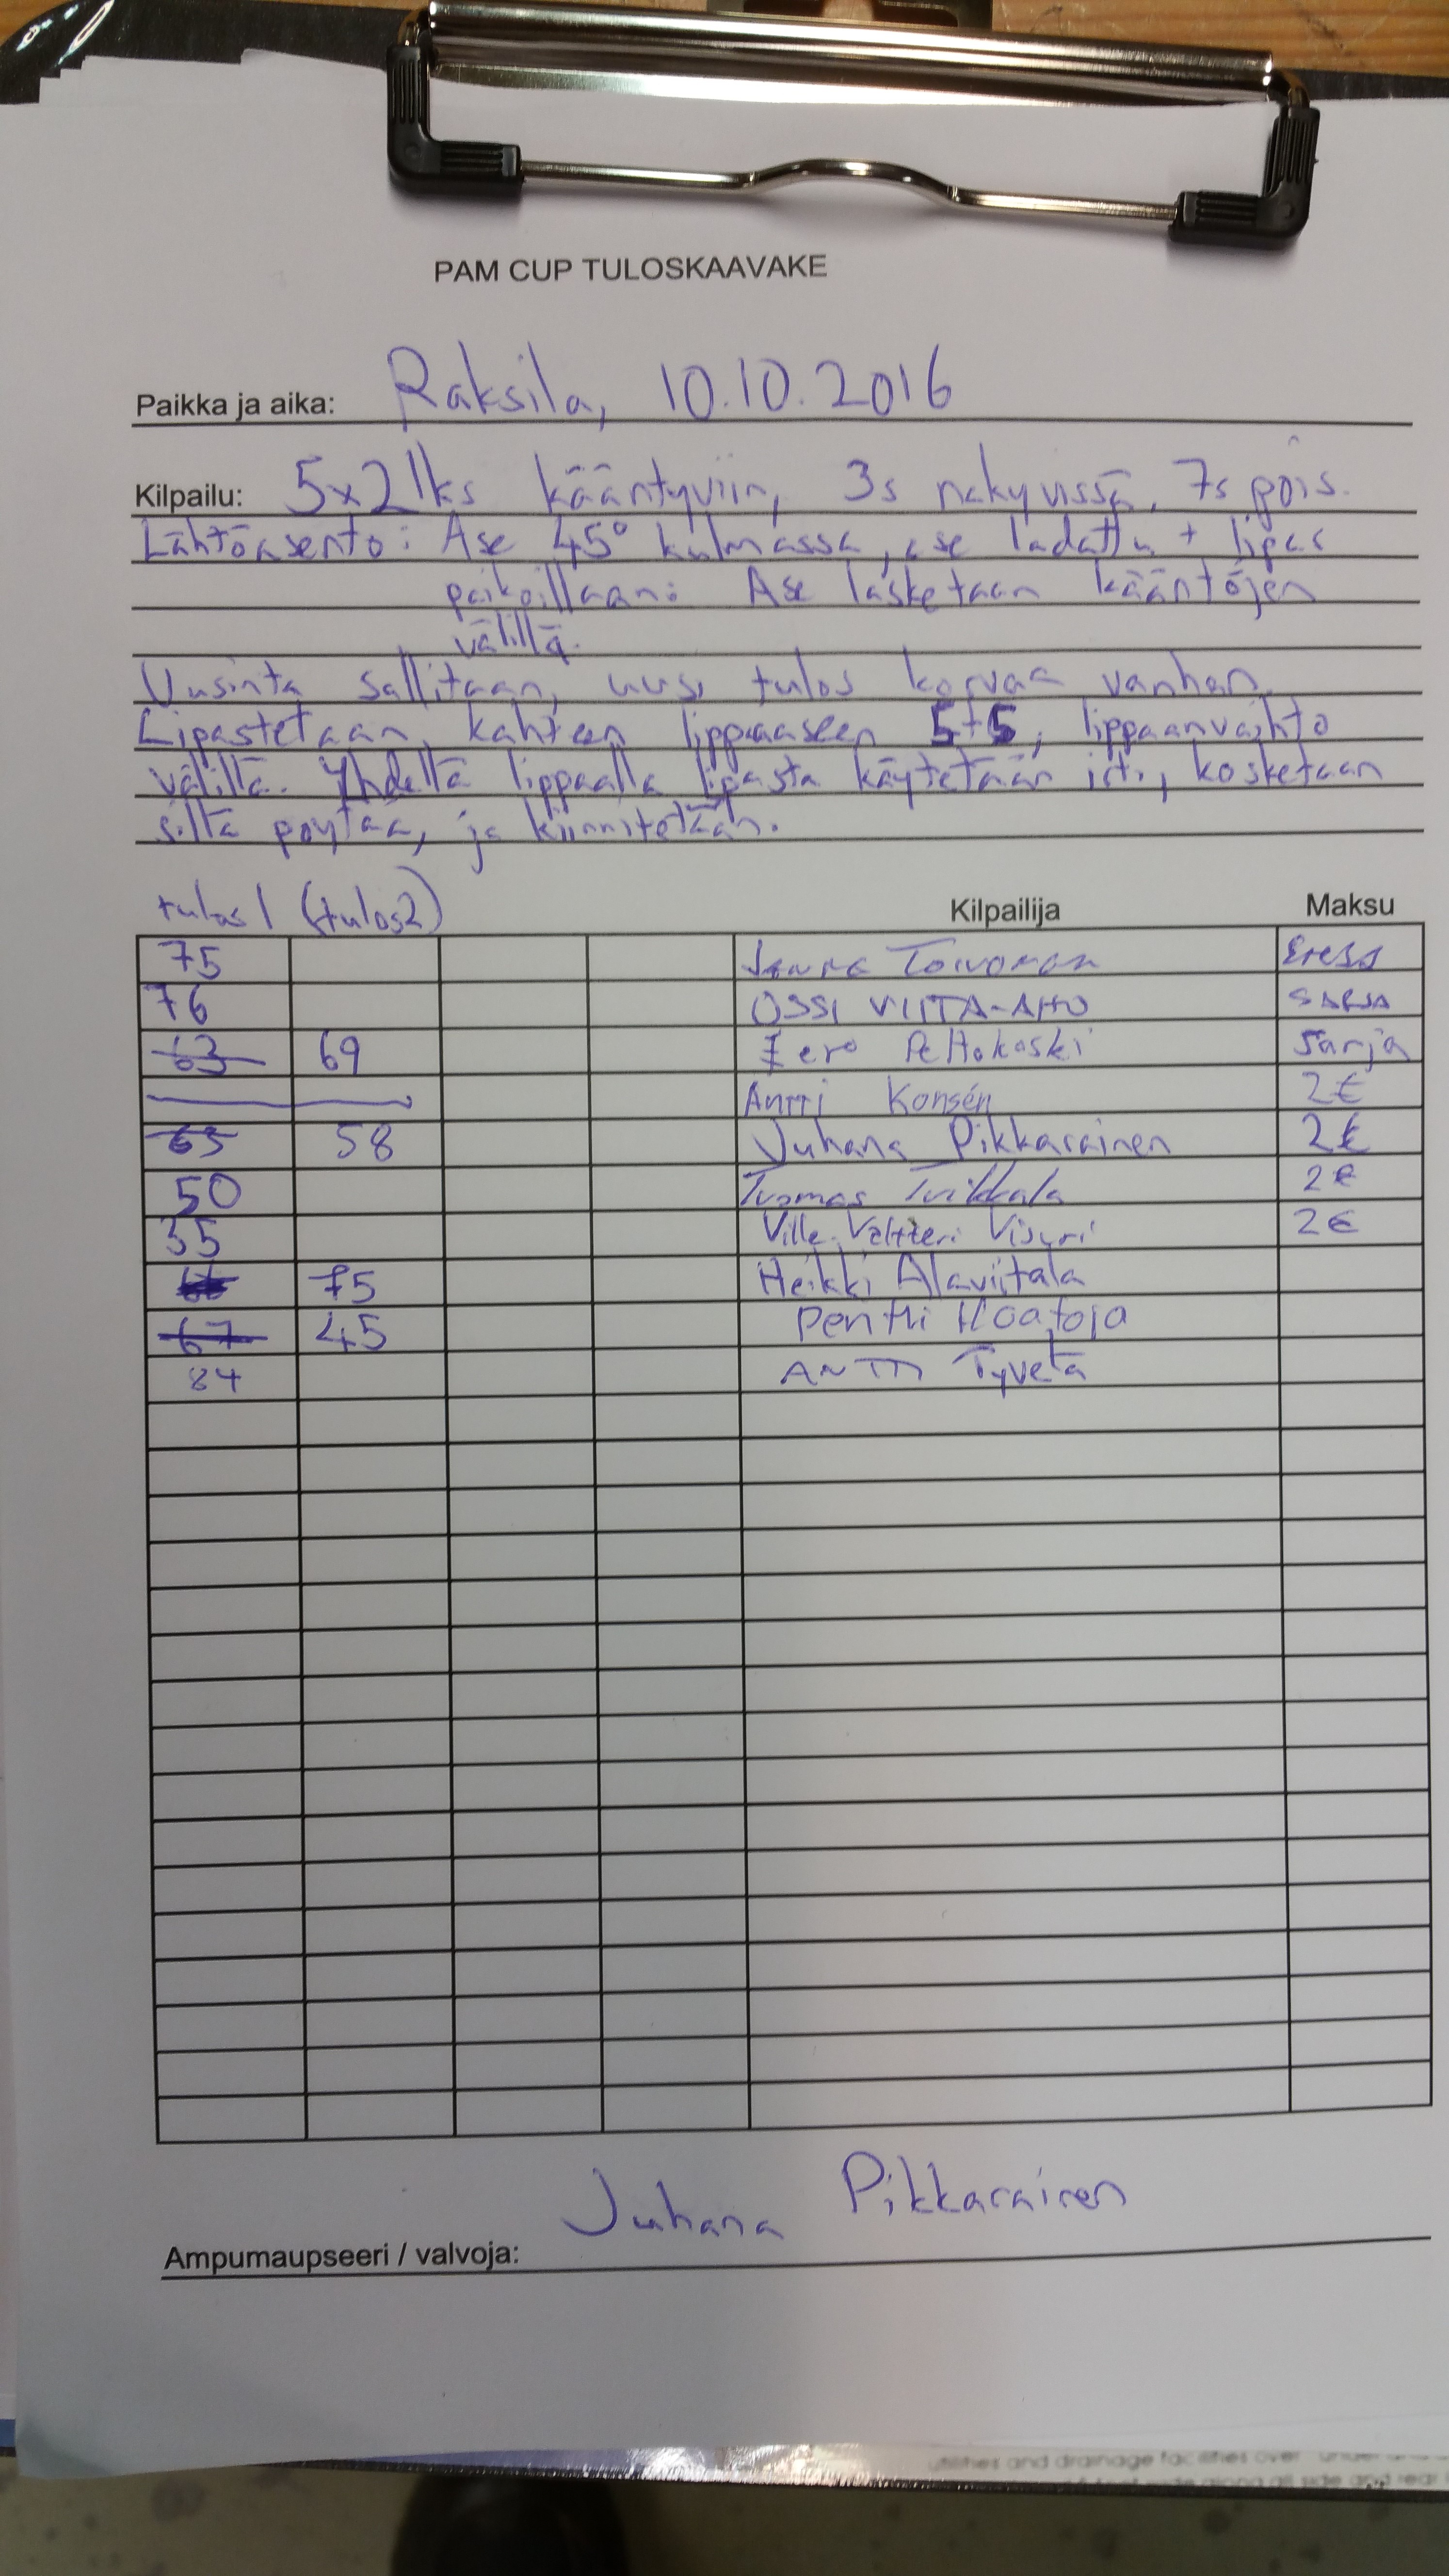 PAM CUP TULOSKAAVAKE
Paikka ja aika: Raksila, 10.10.2016
Kilpailu: 5x2 lks kääntyviin, 3s näkyvissä, 7s pois.
Lähtöasento: Ase 45° kulmassa, ase ladattu + lipas
paikoillaan. Ase lasketaan kääntöjen
välillä.
Uusinta sallitaan, uusi tulos korvaa vanhan.
Lipastetaan kahteen lippaaseen 5+5, lippaanvaihto
välillä. Yhdellä lippaalla lipasta käytetään irti, kosketaan
sillä pöytää, ja kiinnitetään.
tulos 1 (tulos2) Kilpailija Maksu
75 Toivonen
76 OSSI VIITA-AHO SARJA
63 69 Eero Peltokoski Sarja
Antti Konsén 2€
65 58 Juhana Pikkarainen 2€
50 Tuomas 2€
35 Ville-Valtteri Visuri 2€
75 Heikki Alaviitala
67 45 Pentti
84 ANTTI Tyvetä
Juhana Pikkarainen
Ampumaupseeri / valvoja: